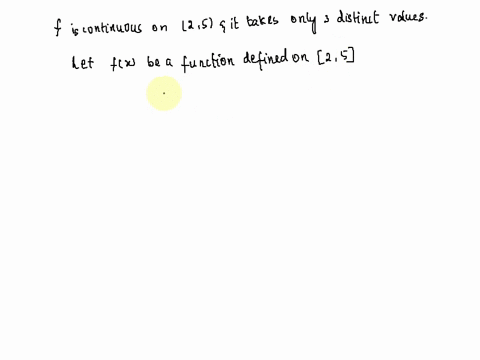 f is continuous on [2,5) & it takes only 3 distinct values.
Let f(x) be a function defined on [2,5]